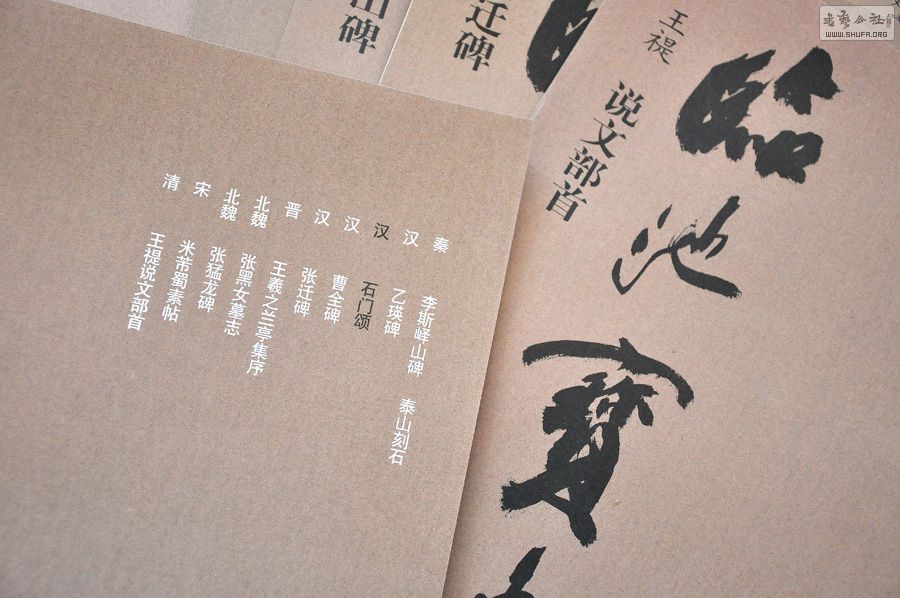 書藝公社
WWW.SHUFA.ORG
臨池寶
王禔
说文部首
迁碑
山碑
秦 李斯峄山碑 泰山刻石
汉 乙瑛碑
汉 石门颂
汉 曹全碑
汉 张迁碑
晋 王羲之兰亭集序
北魏 张黑女墓志
北魏 张猛龙碑
宋 米芾蜀素帖
清 王禔说文部首